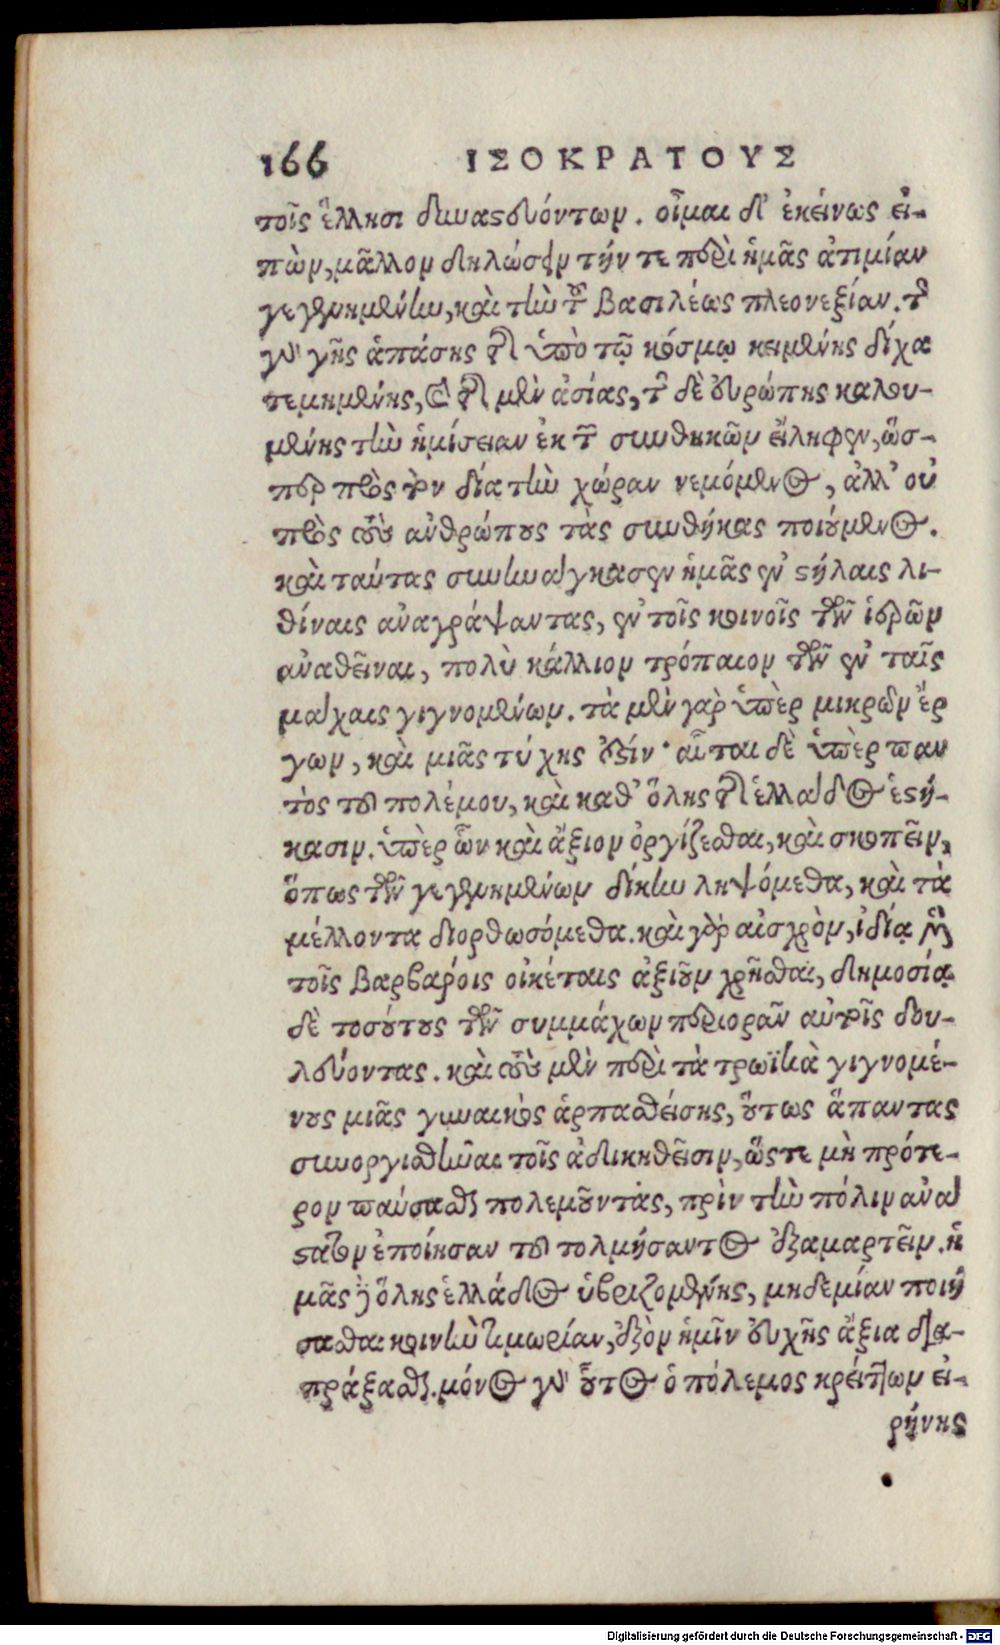 166 ΙΣΟΚΡΑΤΟΥΣ
τοῖς ἕλλησι δυναστευόντων. οἶμαι δ' ἐκείνως εἰ-
πὼν, μᾶλλον δηλώσειν τήν τε περὶ ἡμᾶς ἀτιμίαν
γεγενημένην, καὶ τὴν τοῦ βασιλέως πλεονεξίαν. τῆς
γὰρ γῆς ἁπάσης τῆς ὑπὸ τῷ κόσμῳ κειμένης δίχα
τεμημένης, καὶ τῆς μὲν ἀσίας, τῆς δὲ εὐρώπης καλου-
μένης τὴν ἡμίσειαν ἐκ τῶν συνθηκῶν εἴληφεν, ὥσ-
περ πρὸς τὸν δία τὴν χώραν νεμόμενος, ἀλλ' οὐ
πρὸς τοὺς ἀνθρώπους τὰς συνθήκας ποιούμενος.
καὶ ταύτας συνηνάγκασεν ἡμᾶς ἐν στήλαις λι-
θίναις ἀναγράψαντας, ἐν τοῖς κοινοῖς τῶν ἱερῶν
ἀναθεῖναι, πολὺ κάλλιον τρόπαιον τῶν ἐν ταῖς
μάχαις γιγνομένων. τὰ μὲν γὰρ ὑπὲρ μικρῶν ἔρ
γων, καὶ μιᾶς τύχης ἐστίν· αὗται δὲ ὑπὲρ παν
τὸς τοῦ πολέμου, καὶ καθ' ὅλης τῆς ἑλλάδος ἑστή-
κασιν. ὑπὲρ ὧν καὶ ἄξιον ὀργίζεσθαι, καὶ σκοπεῖν,
ὅπως τῶν γεγενημένων δίκην ληψόμεθα, καὶ τὰ
μέλλοντα διορθωσόμεθα. καὶ γὰρ αἰσχρὸν, ἰδίᾳ μὲν
τοῖς βαρβάροις οἰκέταις ἀξιοῦν χρῆσθαι, δημοσίᾳ
δὲ τοσούτους τῶν συμμάχων περιορᾶν αὐτοῖς δου-
λεύοντας. καὶ τοὺς μὲν περὶ τὰ τρωϊκὰ γιγνομέ-
νους μιᾶς γυναικὸς ἁρπασθείσης, οὕτως ἅπαντας
συνοργισθῆναι τοῖς ἀδικηθεῖσιν, ὥστε μὴ πρότε-
ρον παύσασθαι πολεμοῦντας, πρὶν τὴν πόλιν ἀνά
στατον ἐποίησαν τοῦ τολμήσαντος ἐξαμαρτεῖν. ἡ
μᾶς δὲ ὅλης ἑλλάδος ὑβριζομένης, μηδεμίαν ποιή
σασθαι κοινὴν τιμωρίαν, ἐξὸν ἡμῖν εὐχῆς ἄξια δια-
πράξασθαι. μόνος γὰρ οὗτος ὁ πόλεμος κρείττων εἰ-
ρήνης
Digitalisierung gefördert durch die Deutsche Forschungsgemeinschaft - DFG